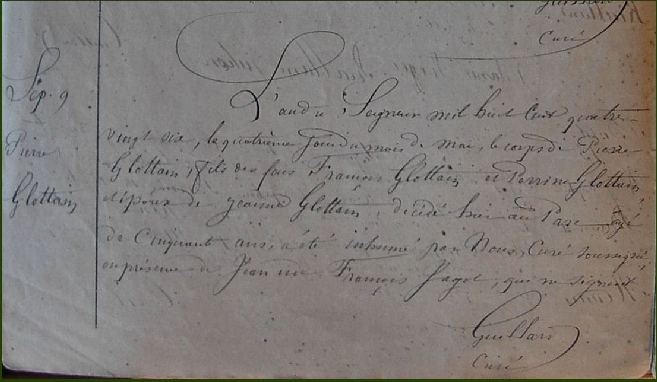 Curé
Sép. 9
Pierre
Glottain
L'an du Seigneur mil huit cent quatre-
vingt six, le quatrième jour du mois de mai, le corps de Pierre
Glottain, fils des feus François Glottain et Perrine Glottain
époux de Jeanne Glottain, décédé hier au Parc âgé
de Cinquante ans, a été inhumé par Nous, Curé soussigné,
en présence de Jean et de François Jagot, qui ne signent
Guillard
Curé